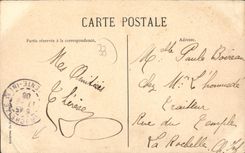 CARTE POSTALE
Partie réservée à la correspondance.
Adresse.
Mes Amitiés
Thérèse
Melle Paule Boireau
chez Mr L'houmede
Tailleur
Rue du Temple
La Rochelle